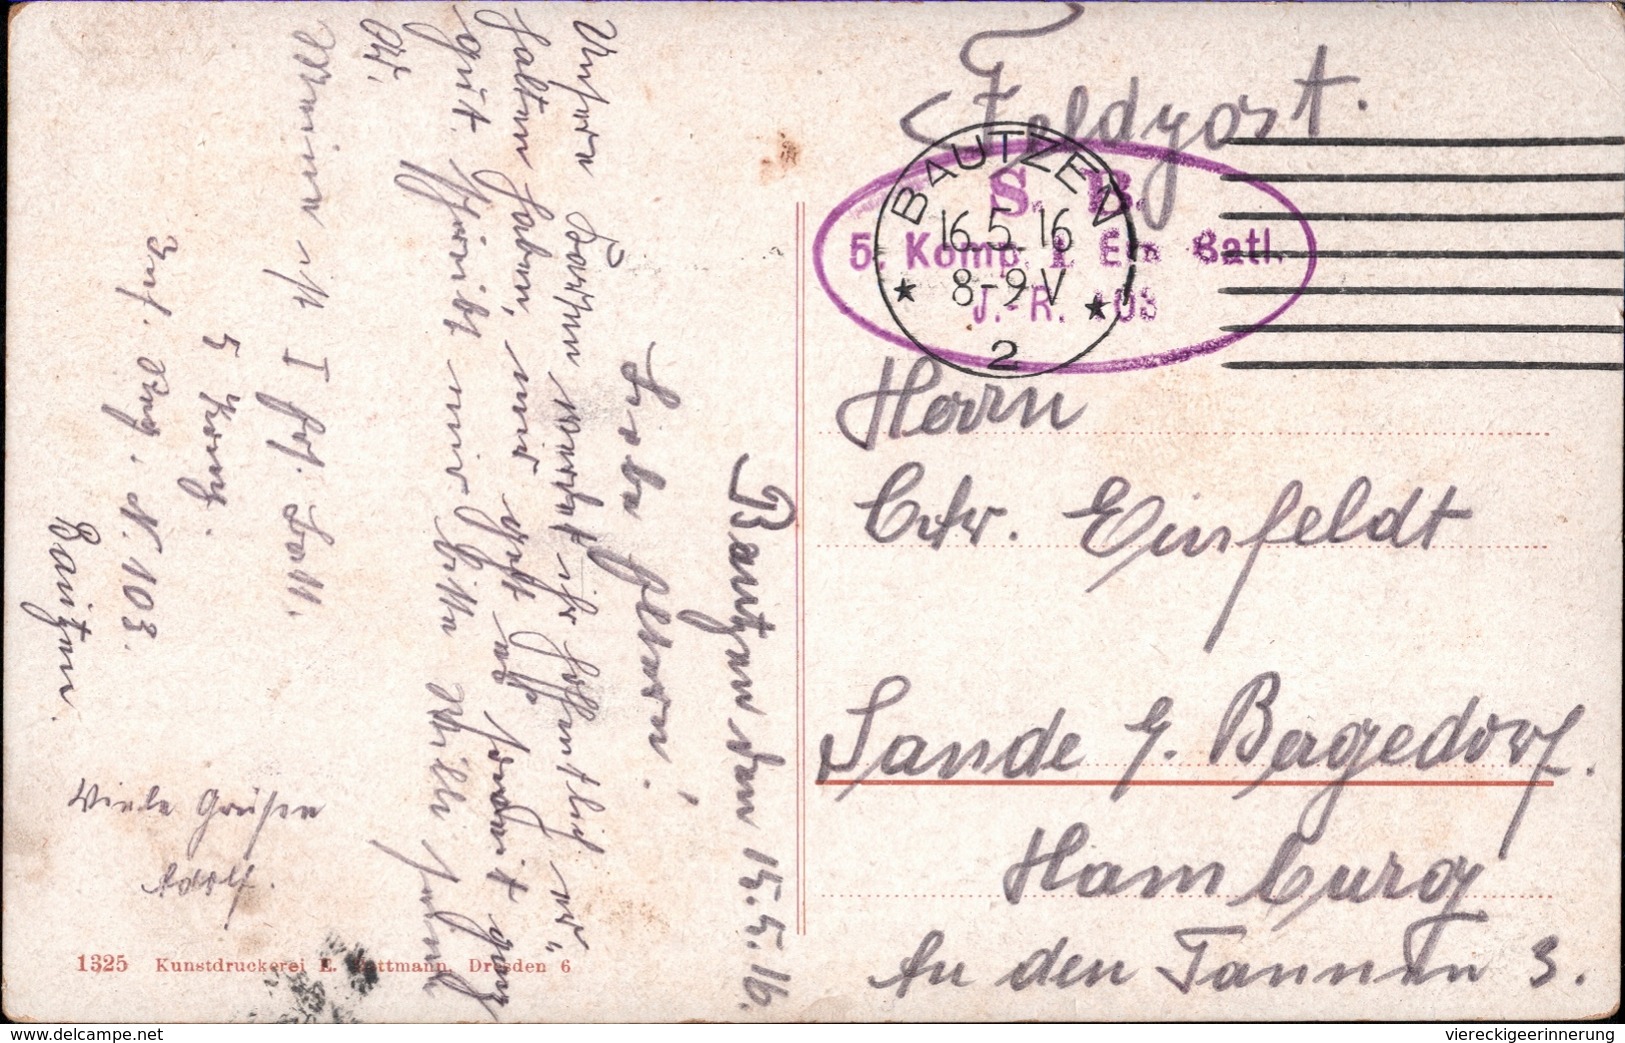 Feldpost.
BAUTZEN
16.5.16
8-9V
2
S. B.
5. Komp. I. Ers. Batl.
J.-R. 103
Herrn
Ctr. Einfeldt
Sande b. Bergedorf.
Hamburg
An den Tannen 3.
Bautzen den 15.5.16.
Liebe Eltern!
Unsere Karten werdet ihr hoffentlich er-
halten haben, mir geht es soweit ganz
gut. Schreibt mir bitte Willi seine
Meine ist I Ers. Batl.
5 Komp.
Inf. Reg. N. 103.
Bautzen.
Viele Grüsse
Adolf.
1325 Kunstdruckerei Dresden 6
www.delcampe.net
viereckigeerinnerung